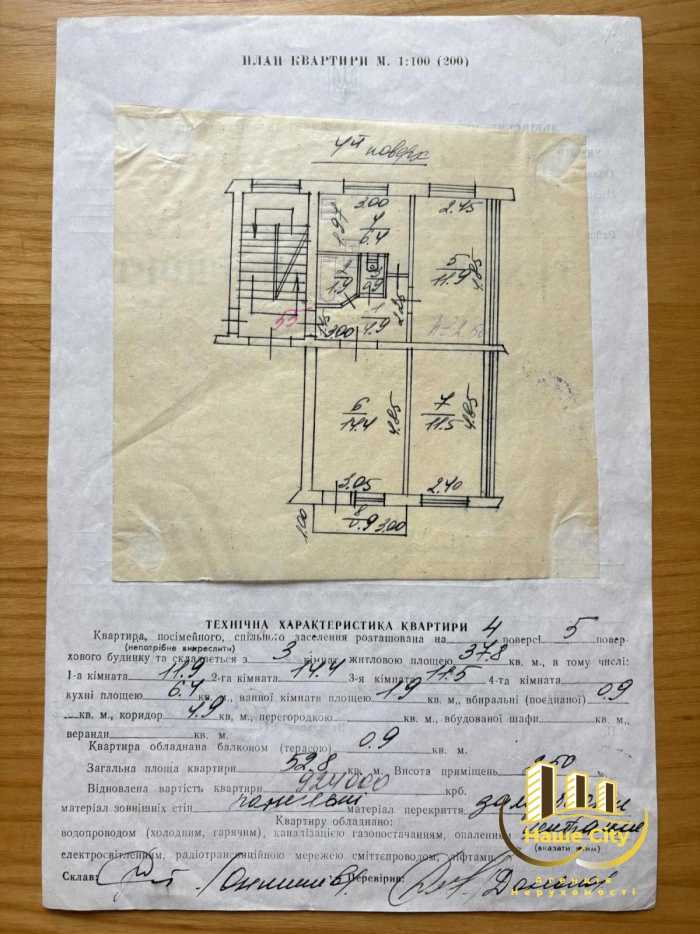 ПЛАН КВАРТИРИ М. 1:100 (200)
4й поверх
3.00
2.45
1.97
4
6.4
5
11.9
4.85
1.9
0.9
1
4.9
2.25
55
3.00
6
14.4
4.85
7
11.5
4.85
3.05
2.40
8
0.9
3.00
1.00
ТЕХНІЧНА ХАРАКТЕРИСТИКА КВАРТИРИ
Квартира, посімейного, спільного заселення розташована на 4 поверсі 5 повер-
(непотрібне викреслити)
хового будинку та складається з 3 кімнат житловою площею 37.8 кв. м., в тому числі:
1-а кімната 11.9 2-га кімната 14.4 3-я кімната 11.5 4-та кімната
кухні площею 6.4 кв. м., ванної кімнати площею 1.9 кв. м., вбиральні (поєднаної) 0.9
кв. м., коридор 4.9 кв. м., перегородкою кв. м., вбудованої шафи кв. м.,
веранди кв. м.
Квартира обладнана балконом (терасою) 0.9 кв. м.
Загальна площа квартири 52.8 кв. м. Висота приміщень 2.50
Відновлена вартість квартири 924000 крб.
матеріал зовнішніх стін панельні матеріал перекриття
Квартиру обладнано:
водопроводом (холодним, гарячим), каналізацією газопостачанням, опаленням
(вказати яким)
електросвітленням, радіотрансляційною мережею сміттєпроводом, ліфтами.
Склав: Перевірив:
Наше City
Агенція
Нерухомості